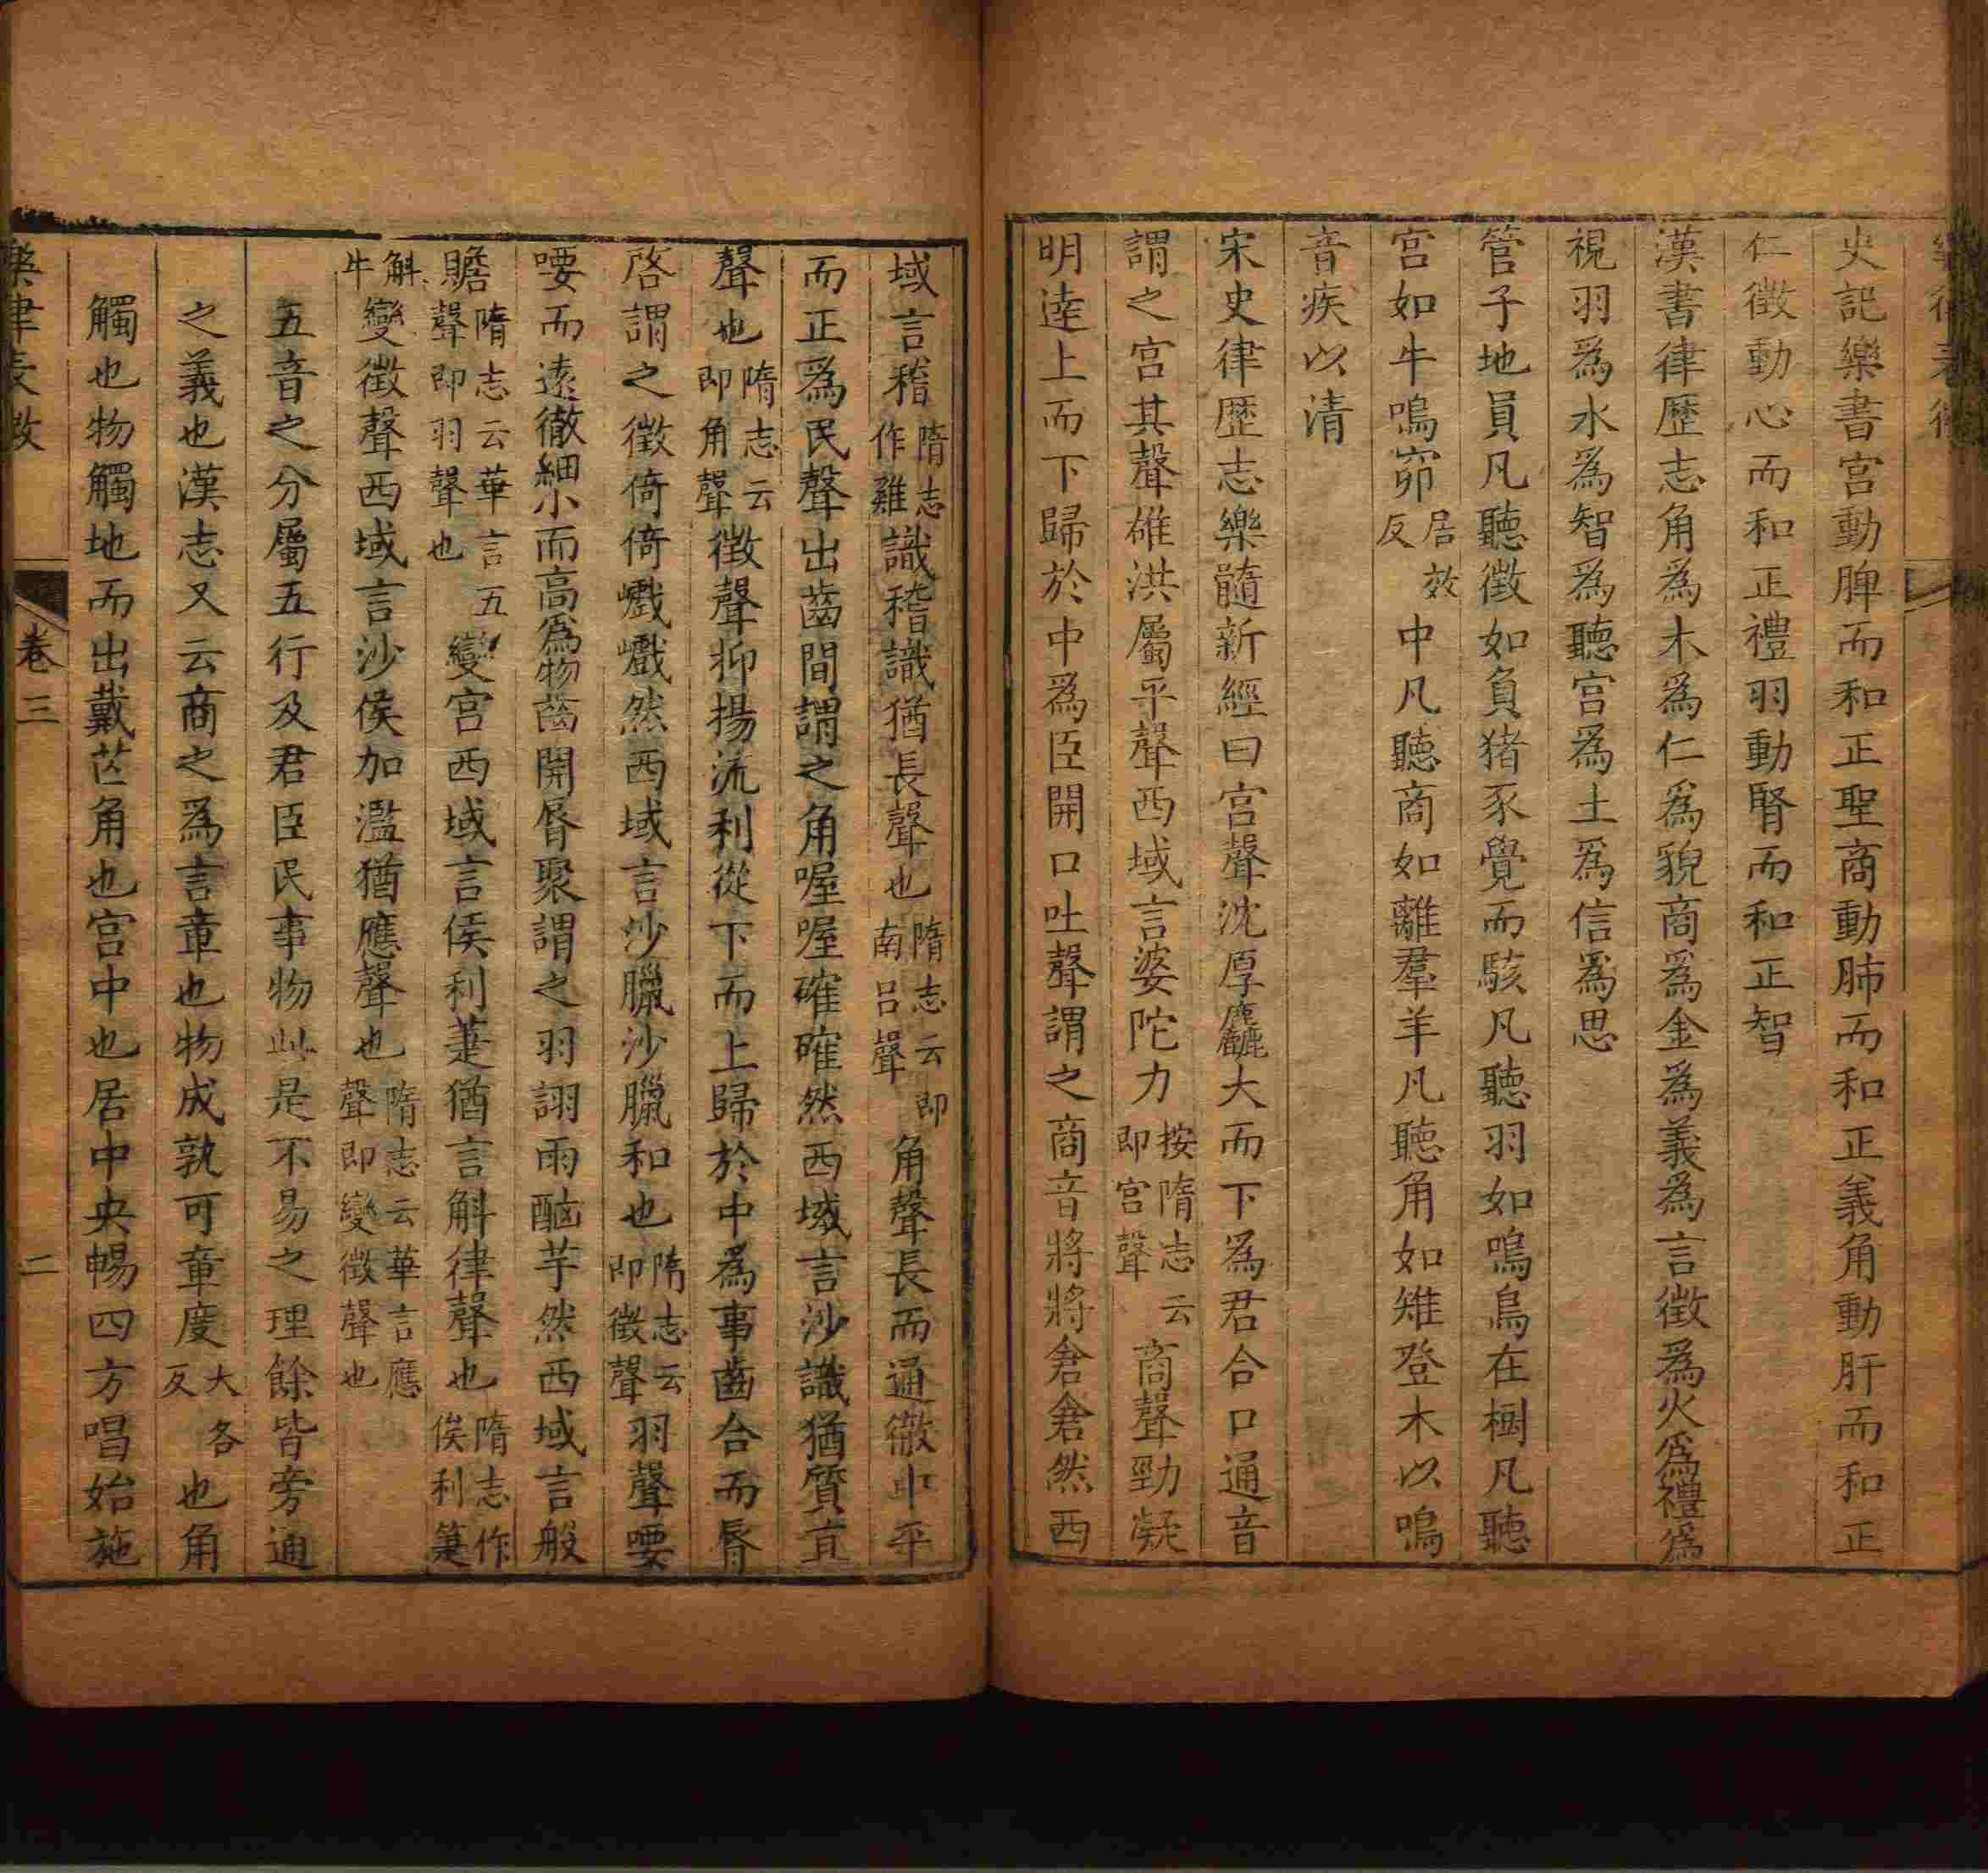 史記樂書宮動脾而和正聖商動肺而和正義角動肝而和正
仁徵動心而和正禮羽動腎而和正智
漢書律歷志角為木為仁為貌商為金為義為言徵為火為禮為
視羽為水為智為聽宮為土為信為思
管子地員凡聽徵如負猪豕覺而駭凡聽羽如鳴鳥在樹凡聽
宮如牛鳴窌居效反中凡聽商如離羣羊凡聽角如雉登木以鳴
音疾以清
宋史律歷志樂髓新經曰宮聲沈厚麤大而下為君合口通音
謂之宮其聲雄洪屬平聲西域言婆陀力按隋志云即宮聲商聲勁凝
明達上而下歸於中為臣開口吐聲謂之商音將將倉倉然西
域言稽隋志作雞識稽識猶長聲也隋志云即南呂聲角聲長而通徹中平
而正為民聲出齒間謂之角喔喔確確然西域言沙識猶質直
聲也隋志云即角聲徵聲抑揚流利從下而上歸於中為事齒合而脣
啓謂之徵倚倚嚱嚱然西域言沙臘沙臘和也隋志云即徵聲羽聲嘤
嘤而遠徹細小而高為物齒開脣聚謂之羽詡雨酗芋然西域言般
贍隋志云華言五聲即羽聲也變宮西域言侯利箑猶言斛律聲也隋志作俟利箑
斛牛變徵聲西域言沙侯加濫猶應聲也隋志云華言應聲即變徵聲也
五音之分屬五行及君臣民事物此是不易之理餘皆旁通
之義也漢志又云商之為言章也物成孰可章度大各反也角
觸也物觸地而出戴芒角也宮中也居中央暢四方唱始施
樂律表微
卷三
二